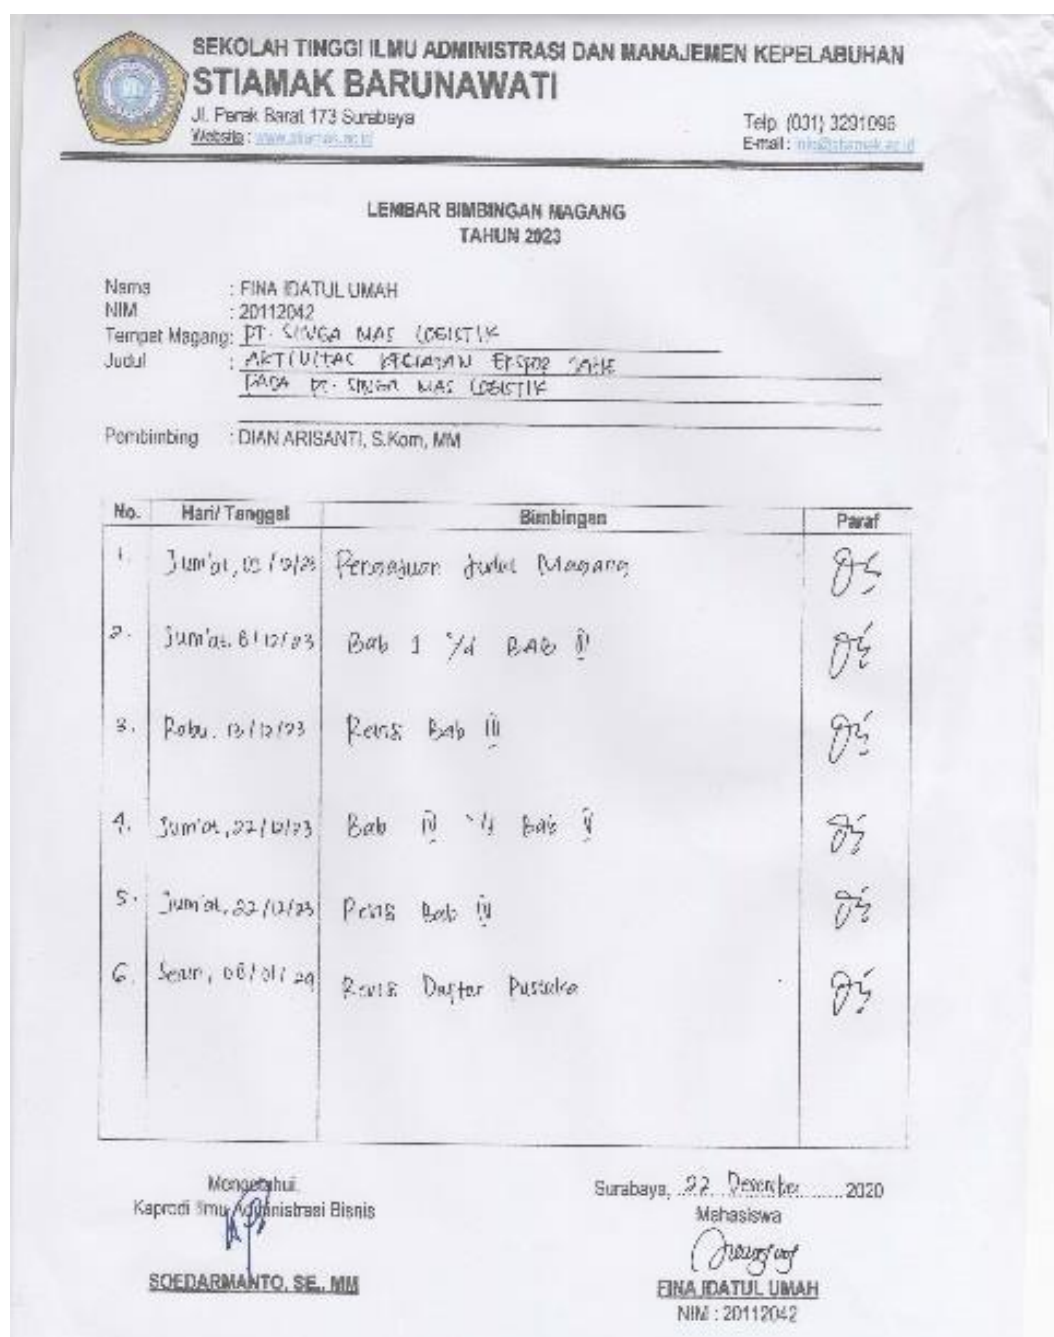 SEKOLAH TINGGI ILMU ADMINISTRASI DAN MANAJEMEN KEPELABUHAN
STIAMAK BARUNAWATI
Jl. Perak Barat 173 Surabaya
Telp. (031) 3291096
Website : www.stiamak.ac.id
E-mail : info@stiamak.ac.id
LEMBAR BIMBINGAN MAGANG
TAHUN 2023
Nama : FINA IDATUL UMAH
NIM : 20112042
Tempat Magang: PT. SINGA MAS LOGISTIK
Judul : AKTIVITAS KEGIATAN EKSPOR
PADA PT. SINGA MAS LOGISTIK
Pembimbing : DIAN ARISANTI, S.Kom, MM
No. Hari/ Tanggal Bimbingan Paraf
1. Jum'at, /12/23 Pengajuan Judul Magang
2. Jum'at, 8/12/23 Bab 1 s/d BAB III
3. Rabu, 13/12/23 Revisi Bab III
4. Jum'at, 22/12/23 Bab IV s/d Bab V
5. Jum'at, 22/12/23 Revisi Bab IV
6. Senin, 08/01/24 Revisi Daftar Pustaka
Mengetahui,
Surabaya, 22 Desember 2020
Kaprodi Ilmu Administrasi Bisnis
Mahasiswa
SOEDARMANTO, SE., MM
FINA IDATUL UMAH
NIM : 20112042